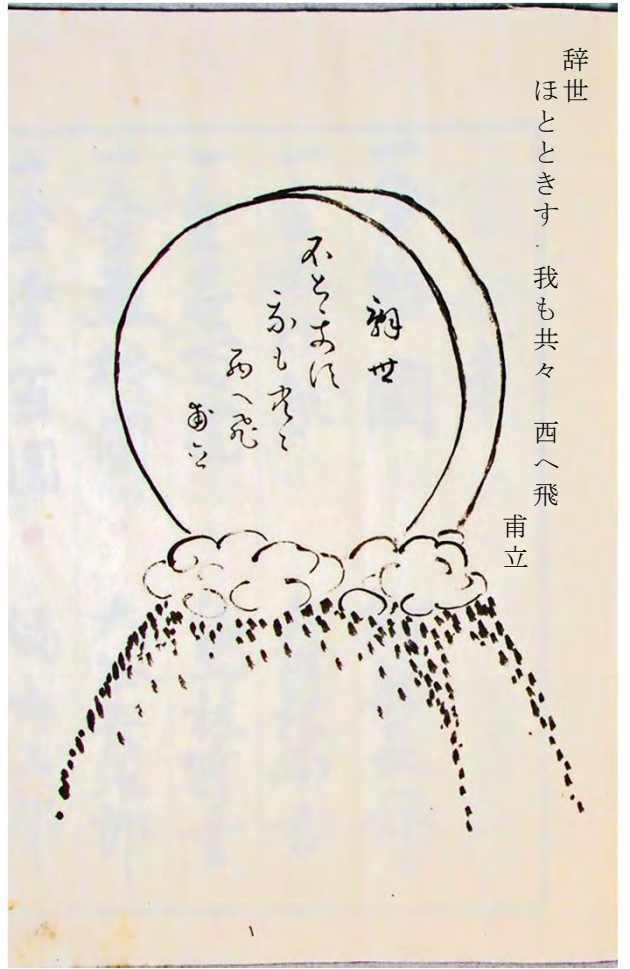 辞世
ほとときす 我も共々 西へ飛
甫立
辞世
不とゝき須
我も共々
西へ飛
甫立